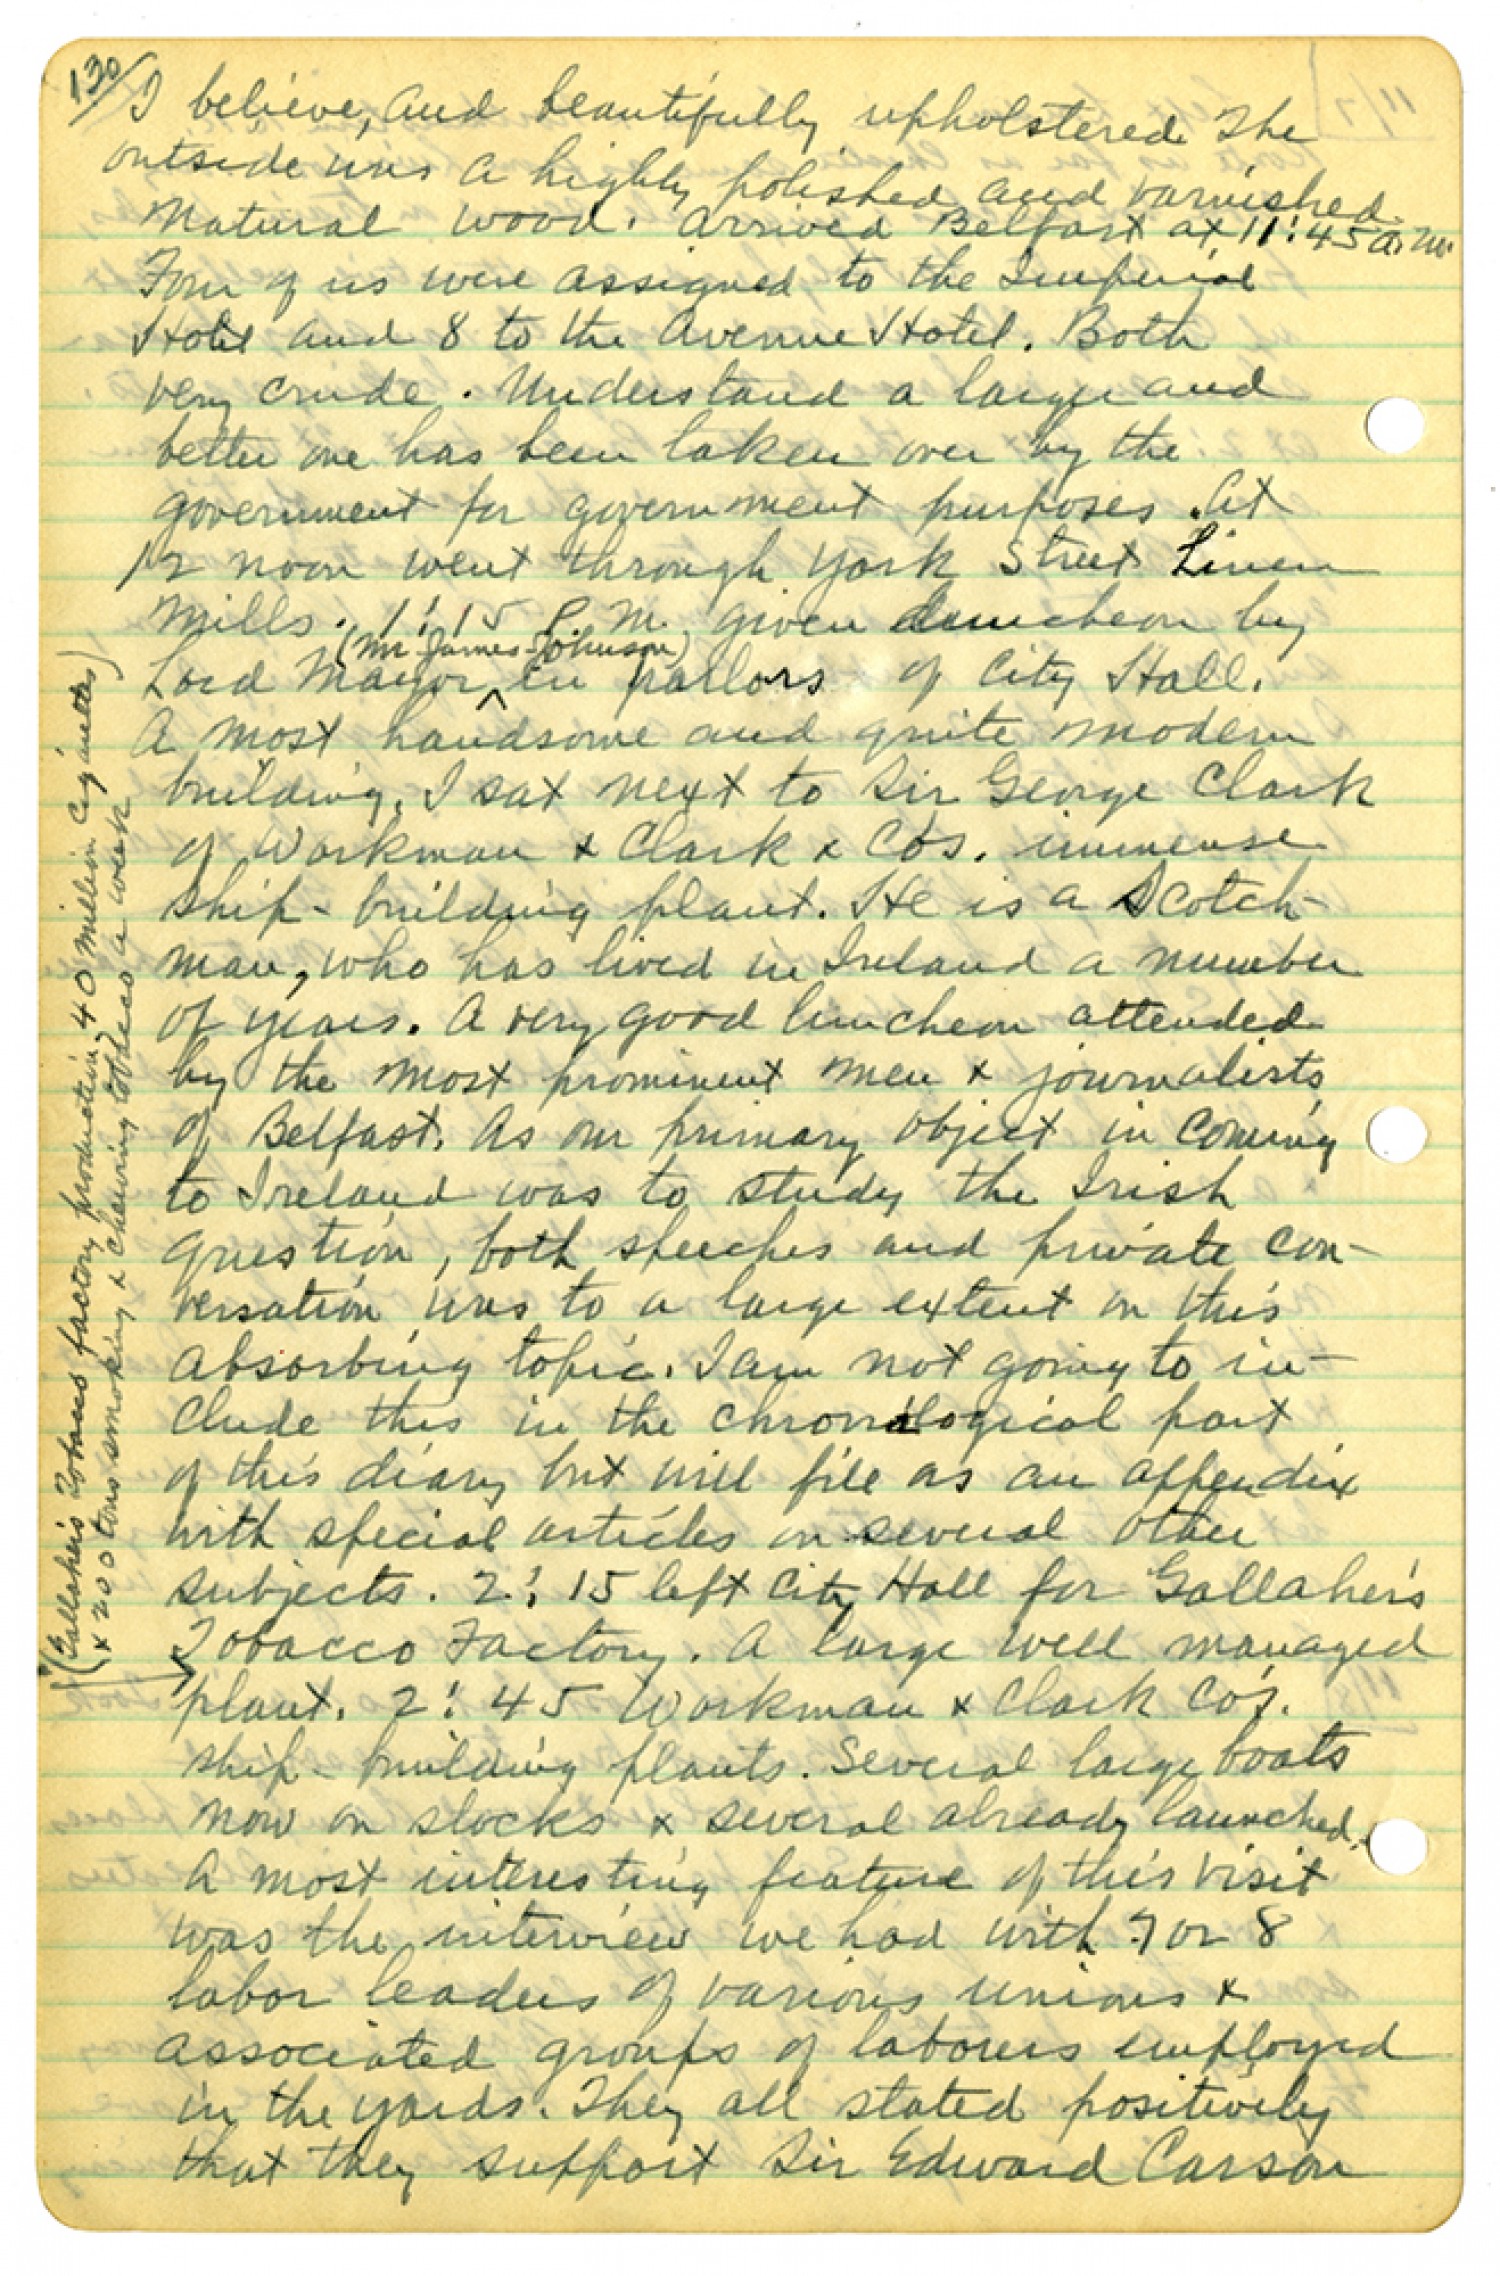 130/
I believe, and beautifully upholstered. The
outside was a highly polished and varnished
natural wood. Arrived Belfast at 11:45 a.m.
Four of us were assigned to the Imperial
Hotel and 8 to the Avenue Hotel. Both
very crude. Understand a larger and
better one has been taken over by the
government for government purposes. At
12 noon went through York Street Linen
Mills. 1:15 P.M. given luncheon by
(Mr James Johnson)
Lord Mayor ^ in parlors of City Hall.
A most handsome and quite modern
building. I sat next to Sir George Clark
of Workman & Clark & Co's. immense
ship-building plant. He is a Scotch-
man, who has lived in Ireland a number
of years. A very good luncheon attended
by the most prominent men & journalists
of Belfast. As our primary object in coming
to Ireland was to study the Irish
question, both speeches and private con-
versation was to a large extent on this
absorbing topic. I am not going to in-
clude this in the chronological part
of this diary but will file as an appendix
with special articles on several other
subjects. 2:15 left City Hall for Gallaher's
Tobacco Factory. A large well managed
plant. 2:45 Workman & Clark Co's.
ship-building plants. Several large boats
now on stocks & several already launched.
A most interesting feature of this visit
was the interview we had with 7 or 8
labor leaders of various unions &
associated groups of laborers employed
in the yards. They all stated positively
that they support Sir Edward Carson
(Gallaher's Tobacco factory production, 40 million cigarettes)
& 200 tons smoking & chewing tobacco a week